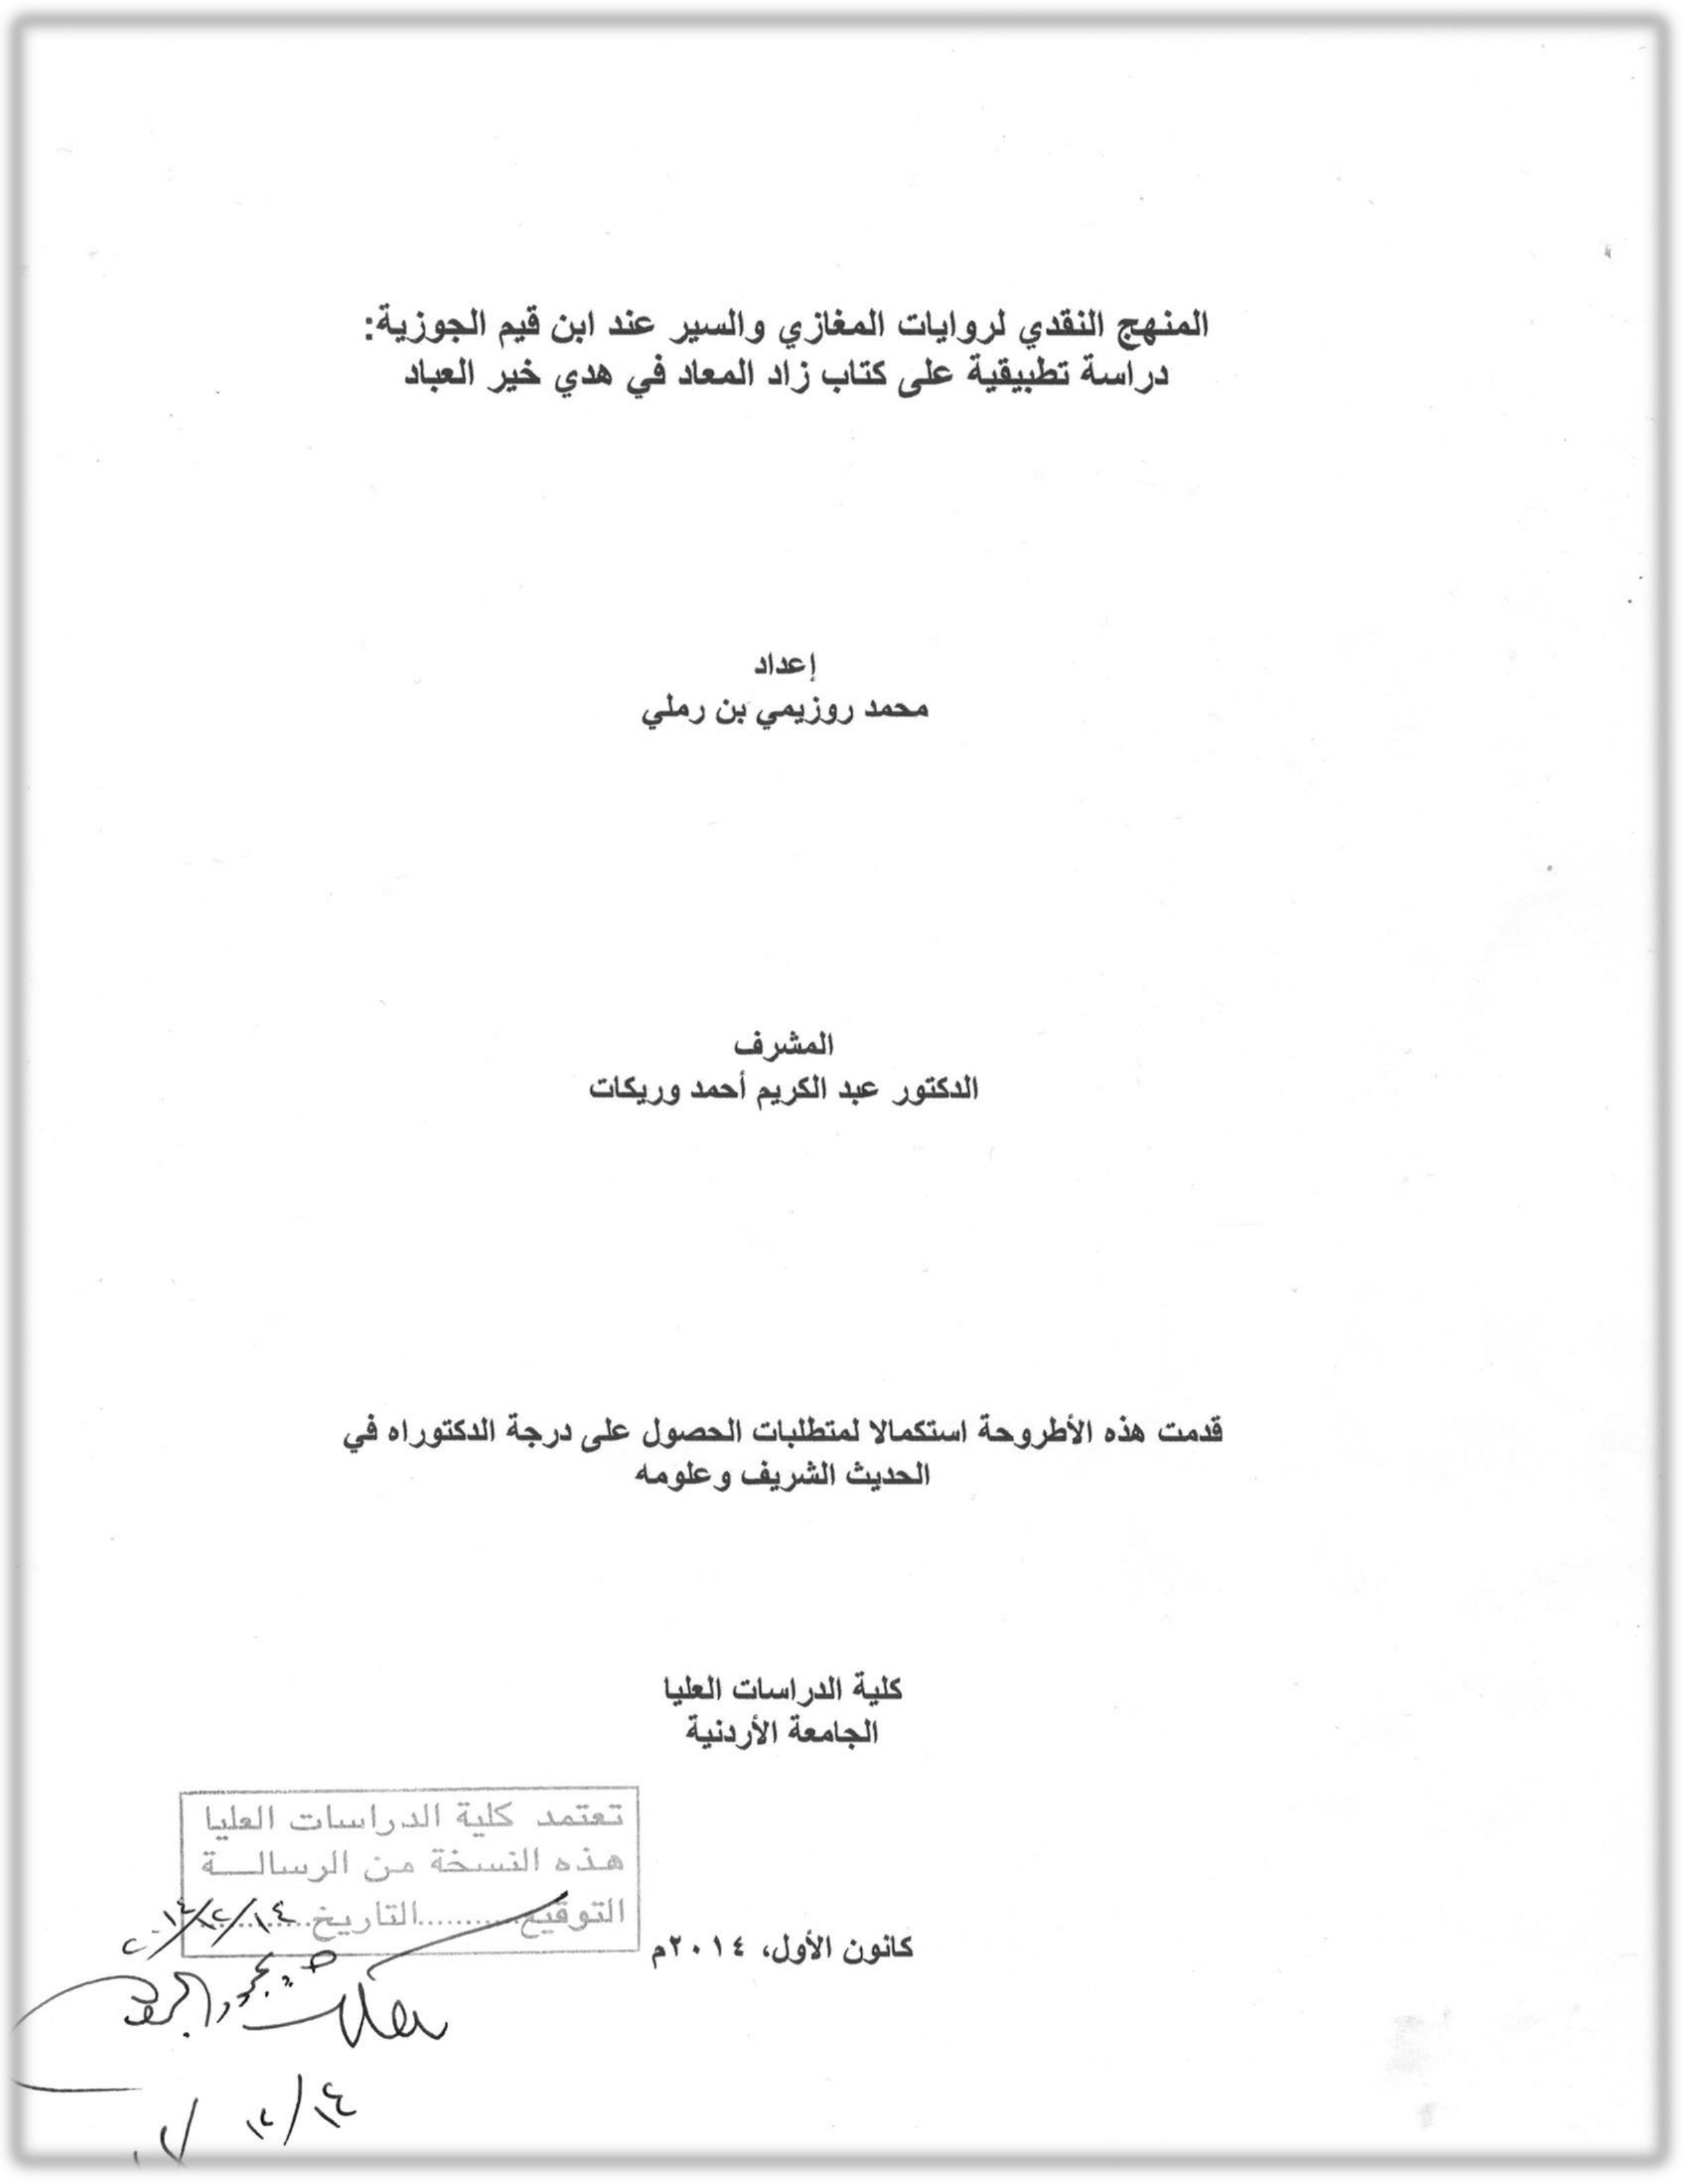 المنهج النقدي لروايات المغازي والسير عند ابن قيم الجوزية:
دراسة تطبيقية على كتاب زاد المعاد في هدي خير العباد
إعداد
محمد روزيمي بن رملي
المشرف
الدكتور عبد الكريم أحمد وريكات
قدمت هذه الأطروحة استكمالا لمتطلبات الحصول على درجة الدكتوراه في
الحديث الشريف وعلومه
كلية الدراسات العليا
الجامعة الأردنية
تعتمد كلية الدراسات العليا
هذه النسخة من الرسالـــة
التوقيع...........التاريخ............ ١٤/١٢/١٤
كانون الأول، ٢٠١٤م
١٤/١٢